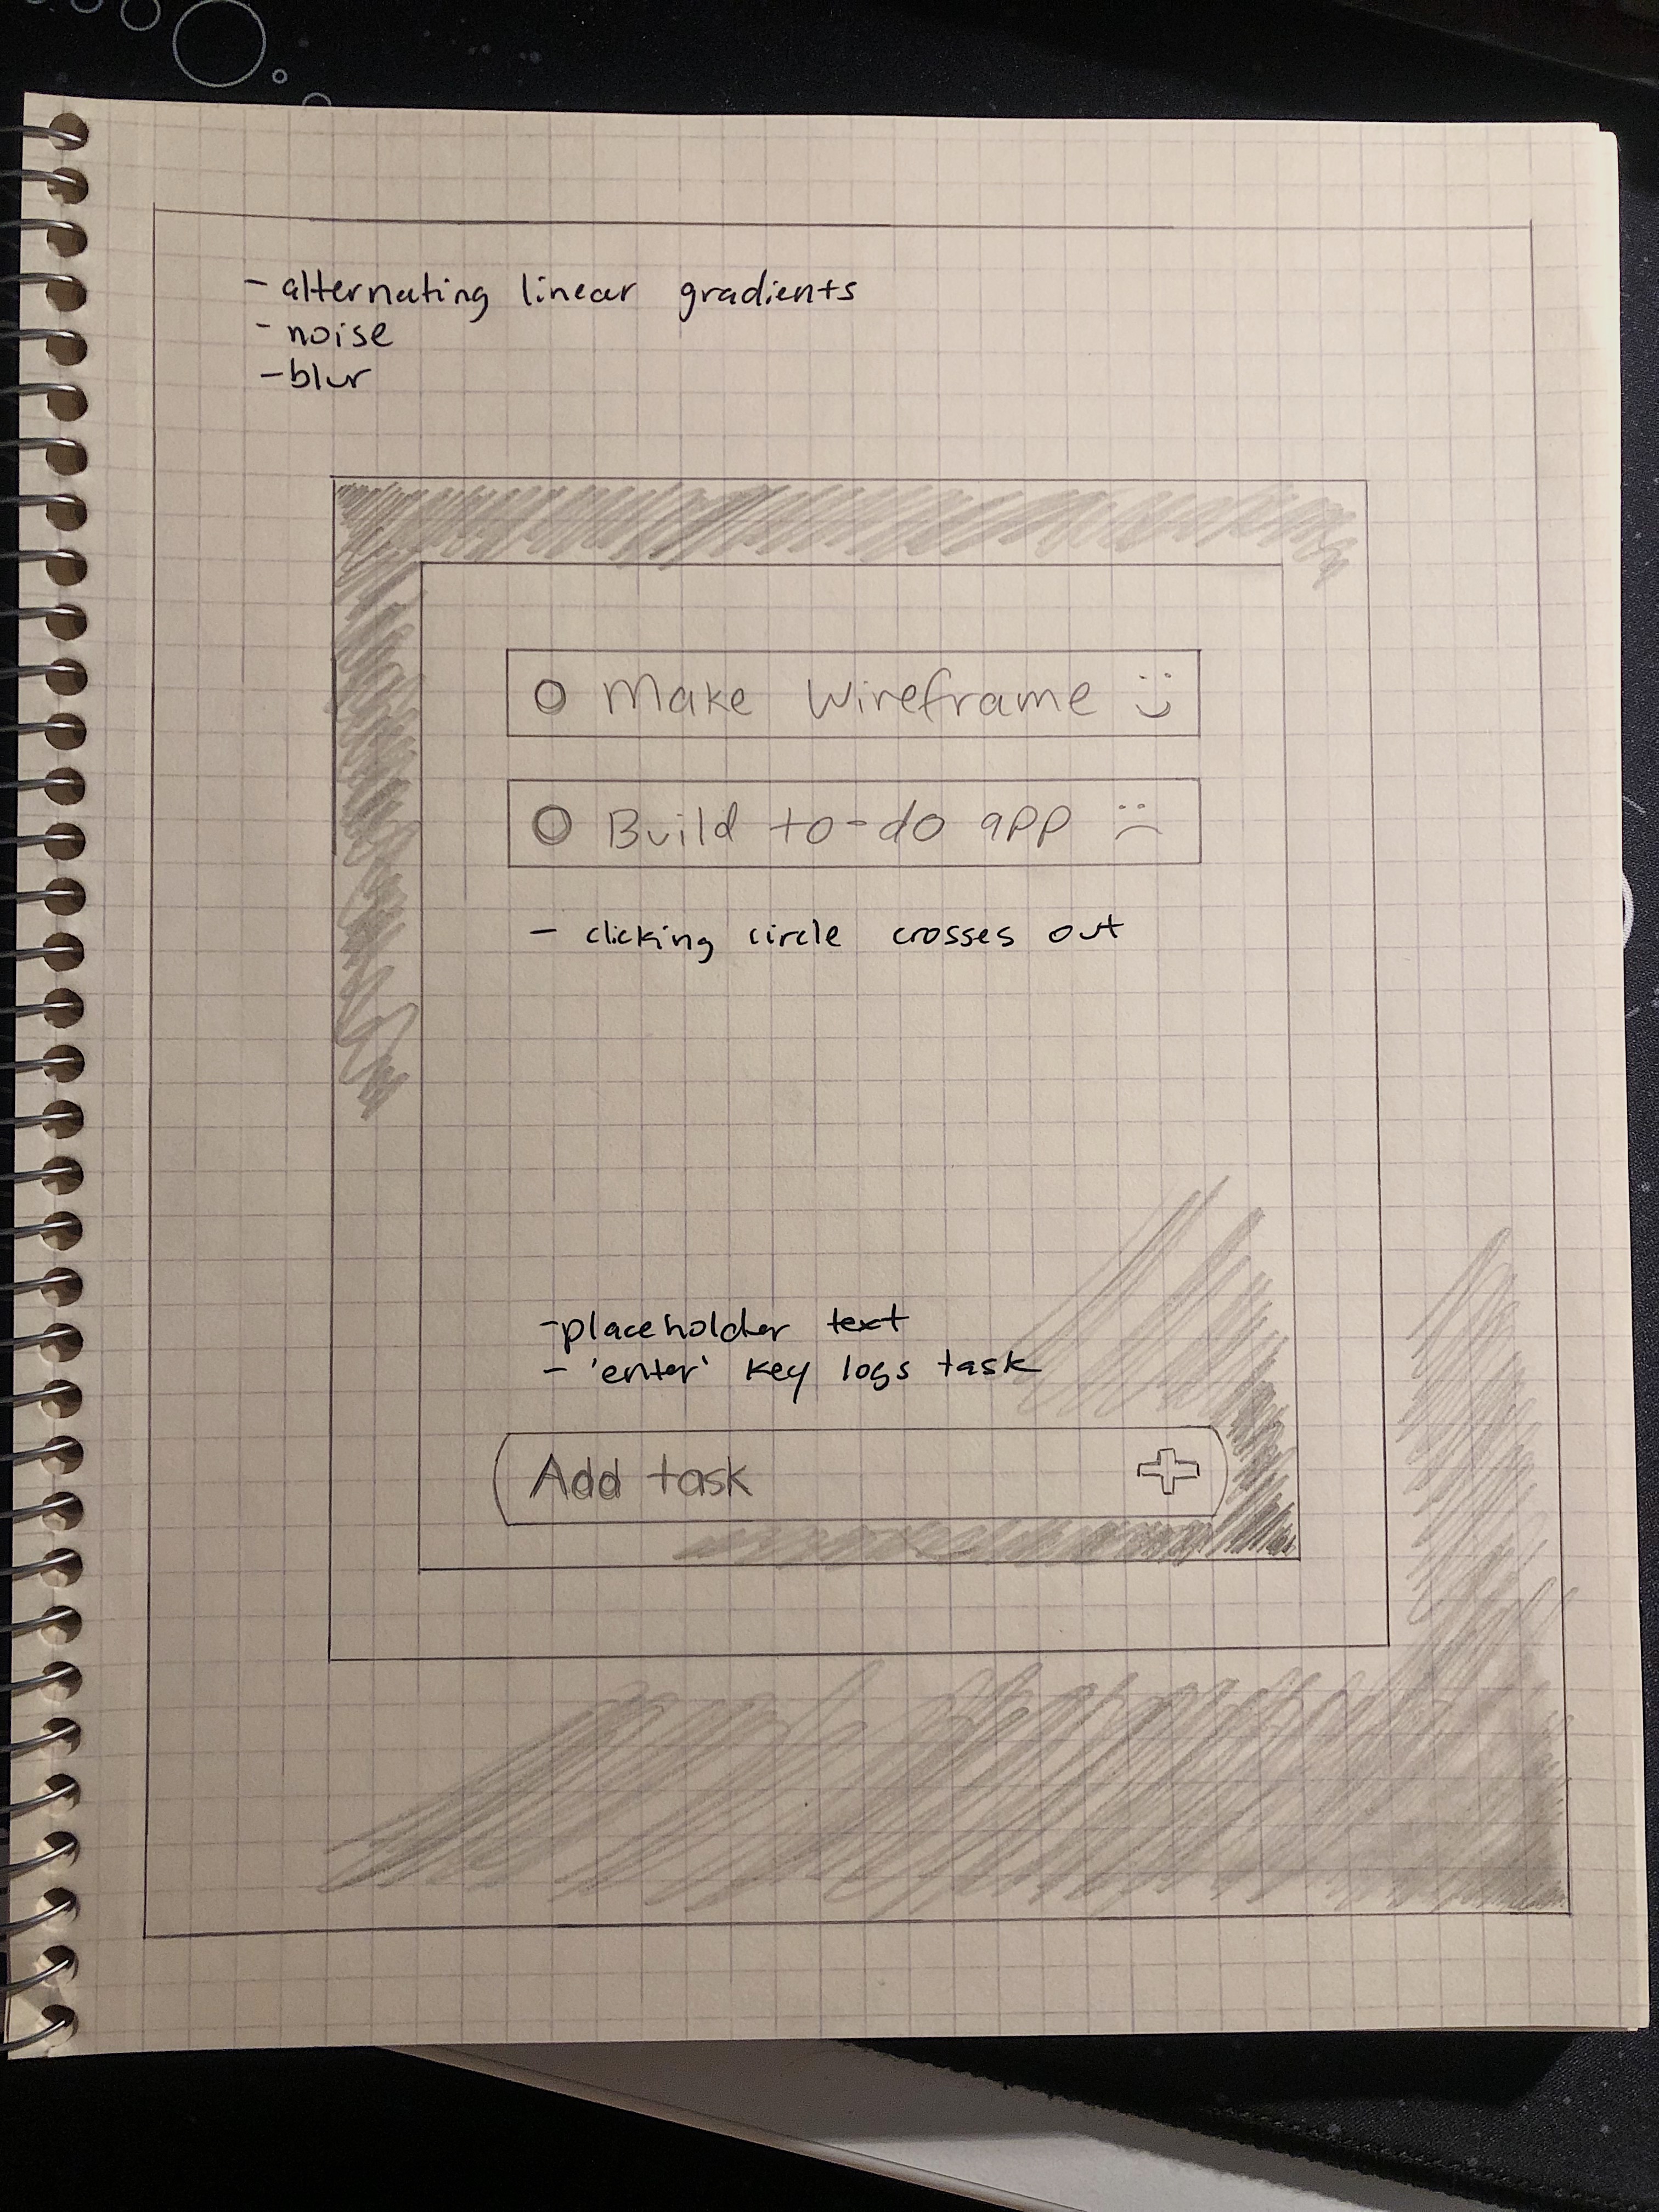 - alternating linear gradients
- noise
- blur
Make Wireframe :)
Build to-do app :(
- clicking circle crosses out
- placeholder text
- 'enter' key logs task
Add task +